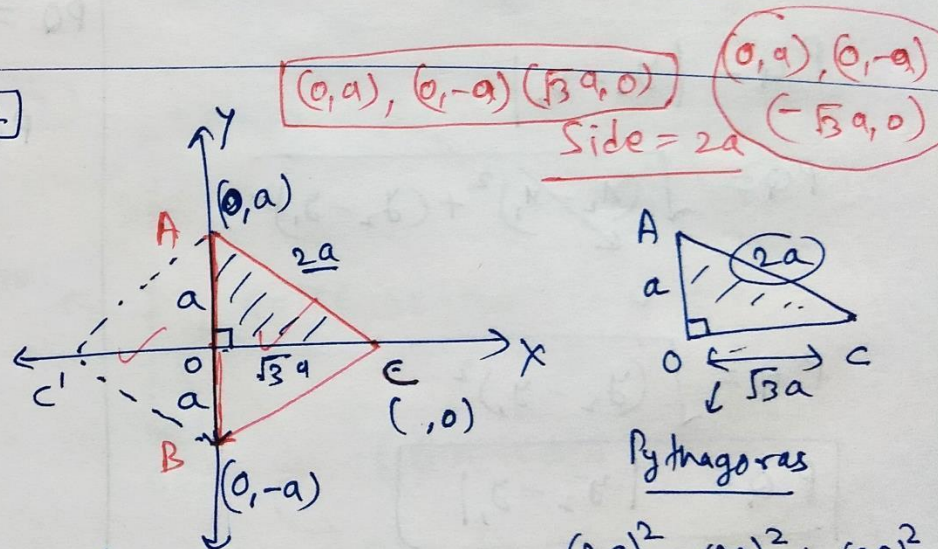 (0,a), (0,-a) (√3 a,0)
(0,a), (0,-a)
(-√3 a, 0)
Side = 2a
Y
(0,a)
A
2a
a
O
√3 a
C
X
C'
a
(  ,0)
B
(0,-a)
A
2a
a
O
C
√3a
Pythagoras